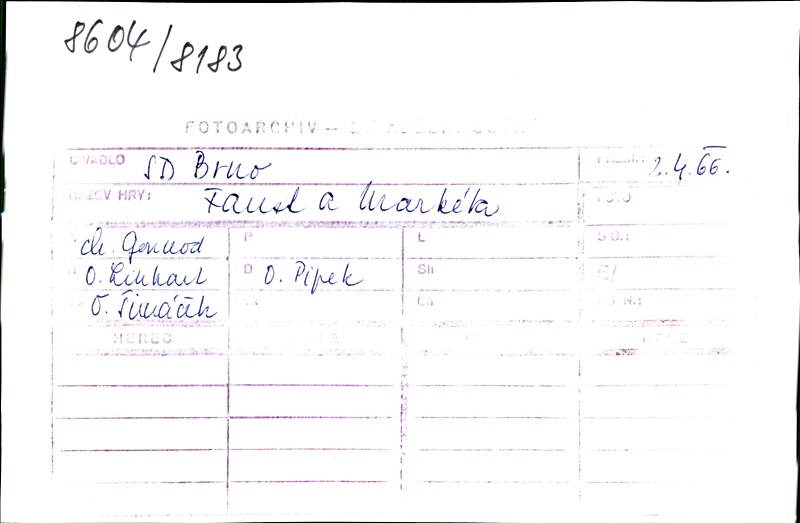 8604/8183
FOTOARCHIV –
DIVADLO SD Brno PREM.: 2.4.66.
NÁZEV HRY: Faust a Markéta FOTO
ch. Gounod P L SIG.:
O. Linhart D O. Pipek Sh E/
O. Šimáček Ch
HEREC ROLE